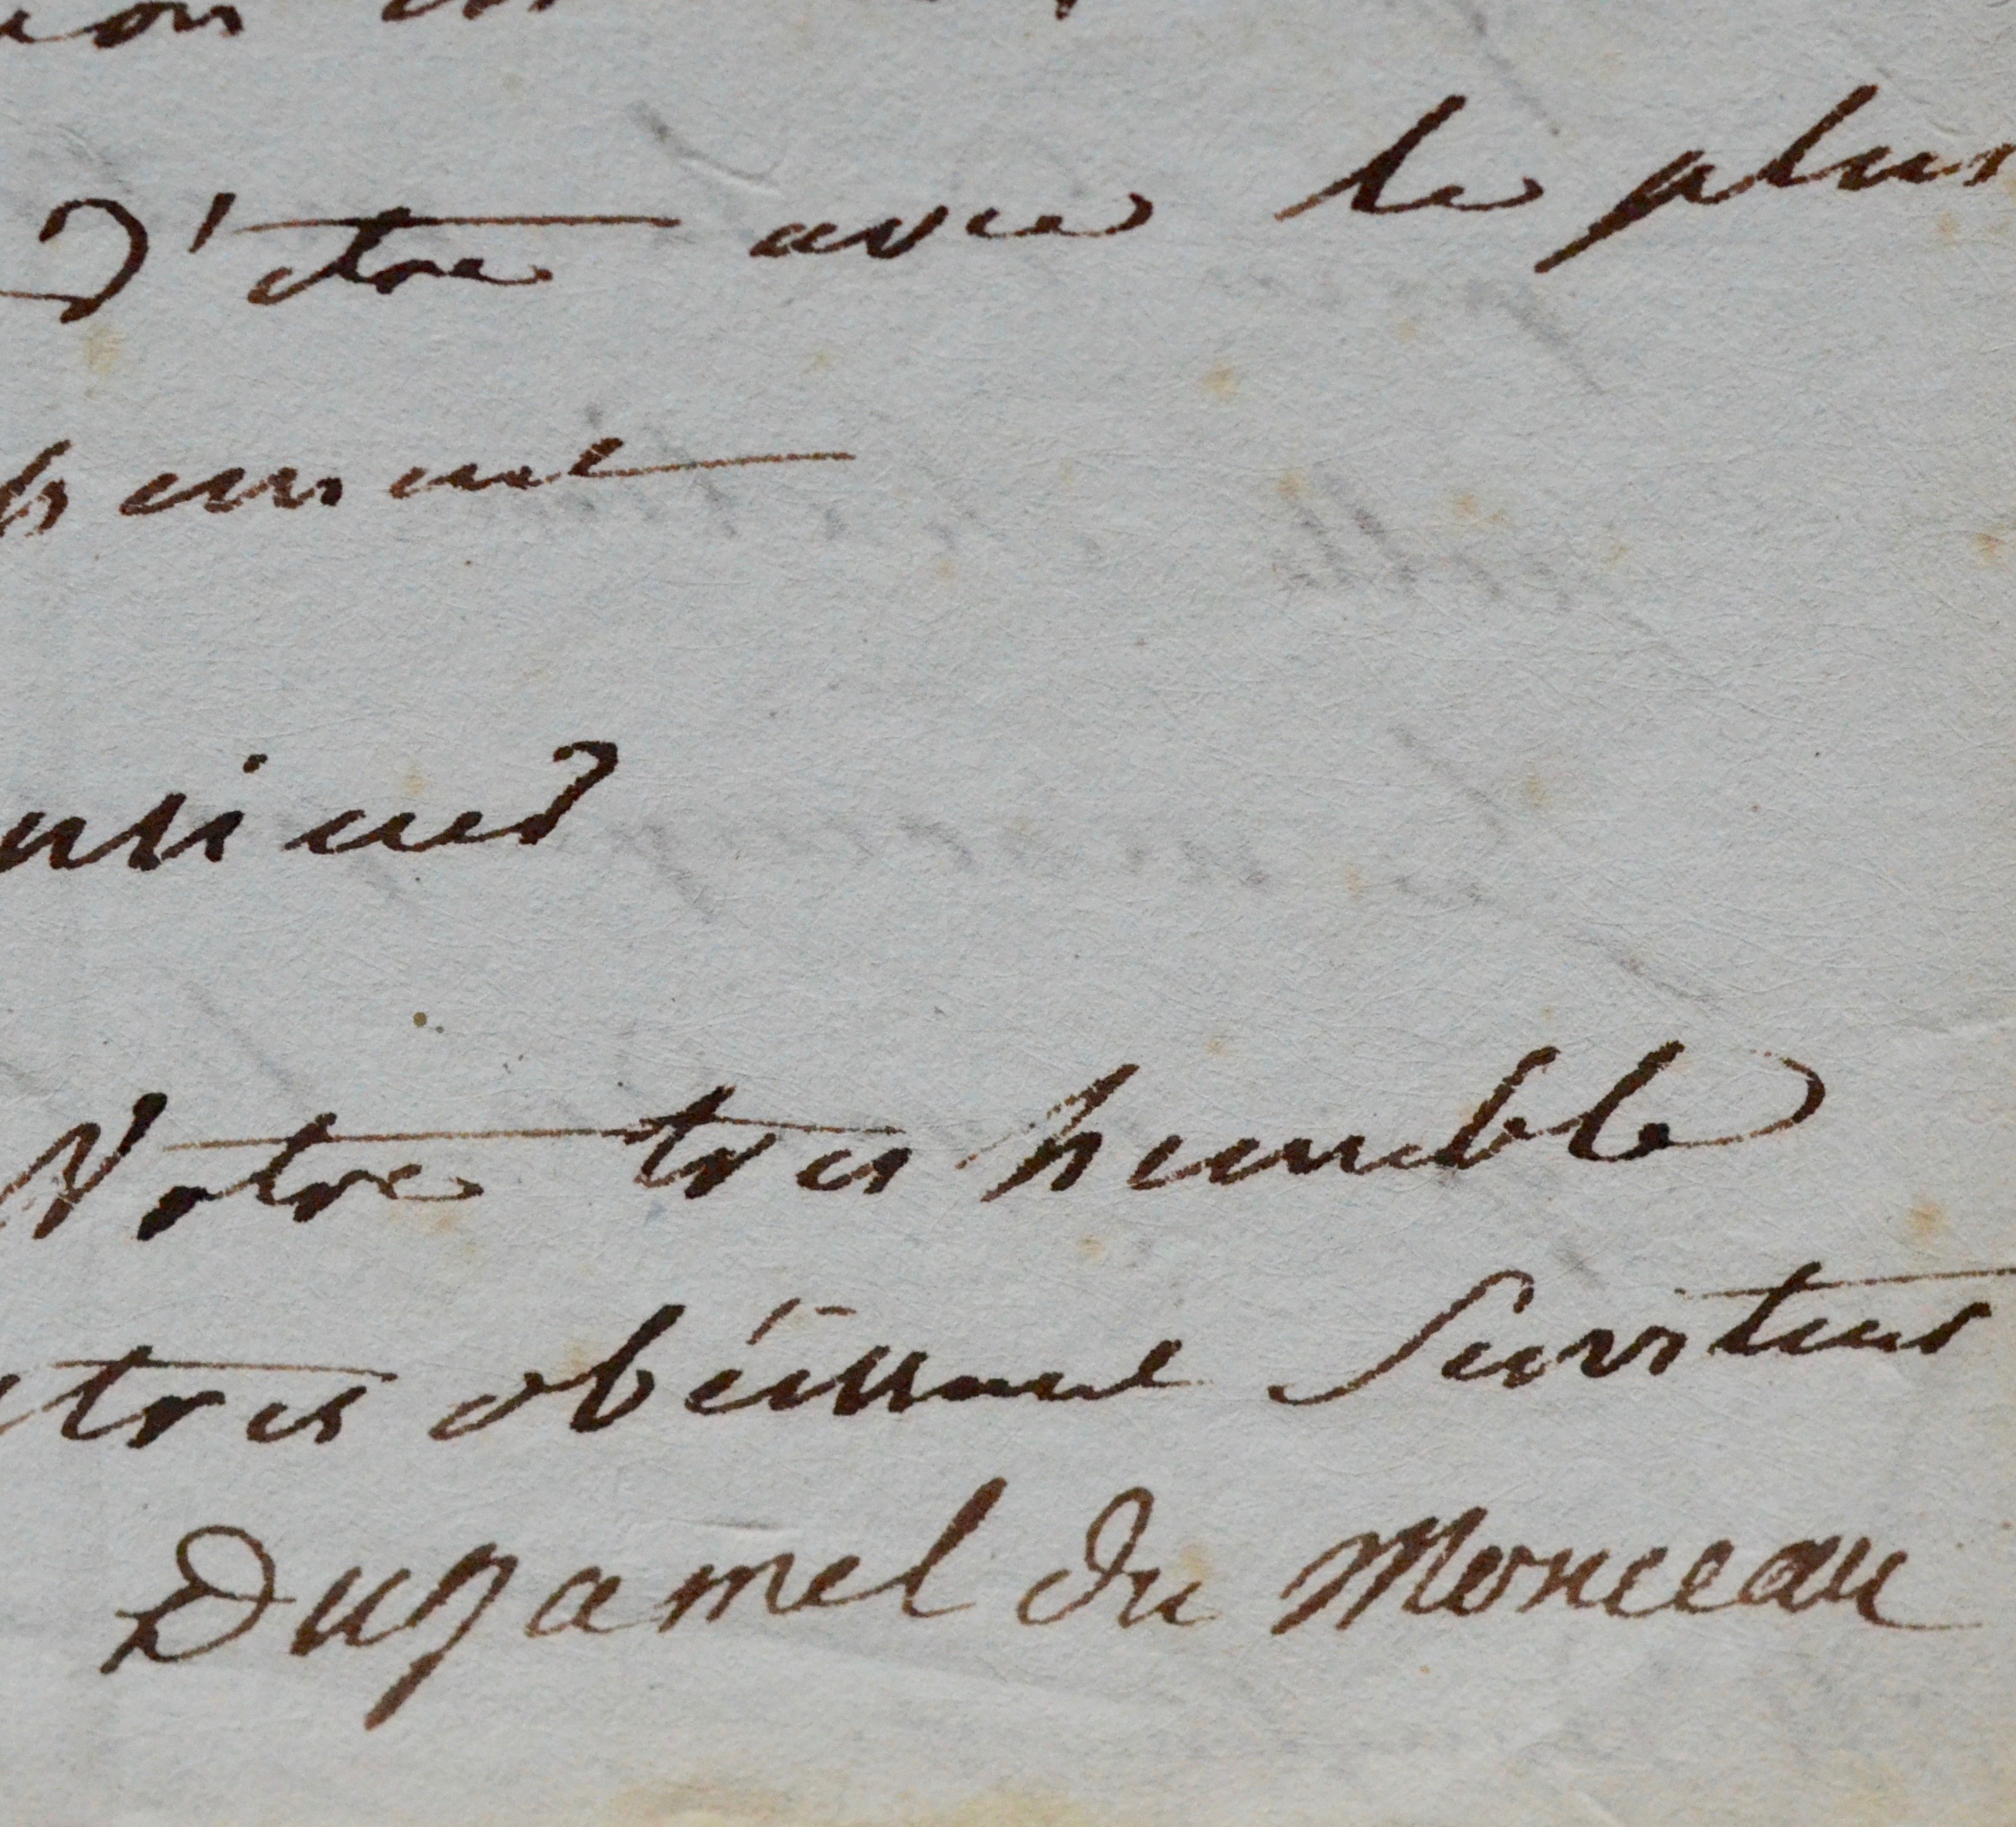 D'etre avec le plus
hement
nsieur
Votre tres humble
tres obéissant Serviteur
Duhamel du Monceau